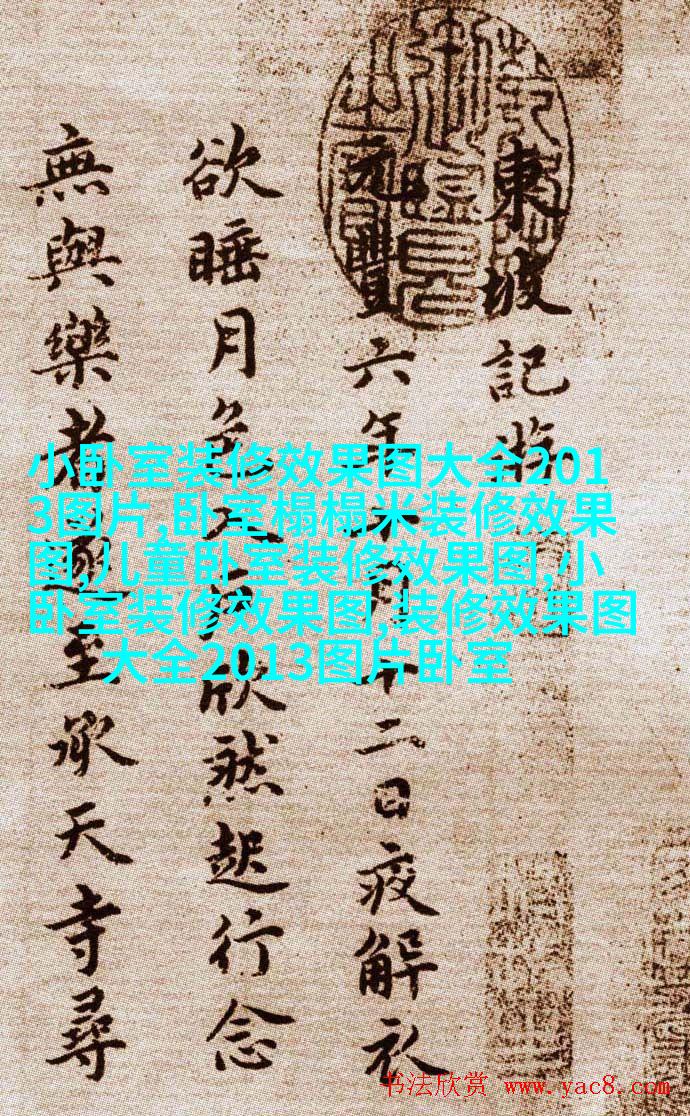 東坡記
元豐六年十二日疲解衣
欲睡月色欣然起行念
無與樂者遂至承天寺尋
小卧室装修效果图大全201
3图片,卧室榻榻米装修效果
图,儿童卧室装修效果图,小
卧室装修效果图,装修效果图
大全2013图片卧室
书法欣赏 www.yac8.com